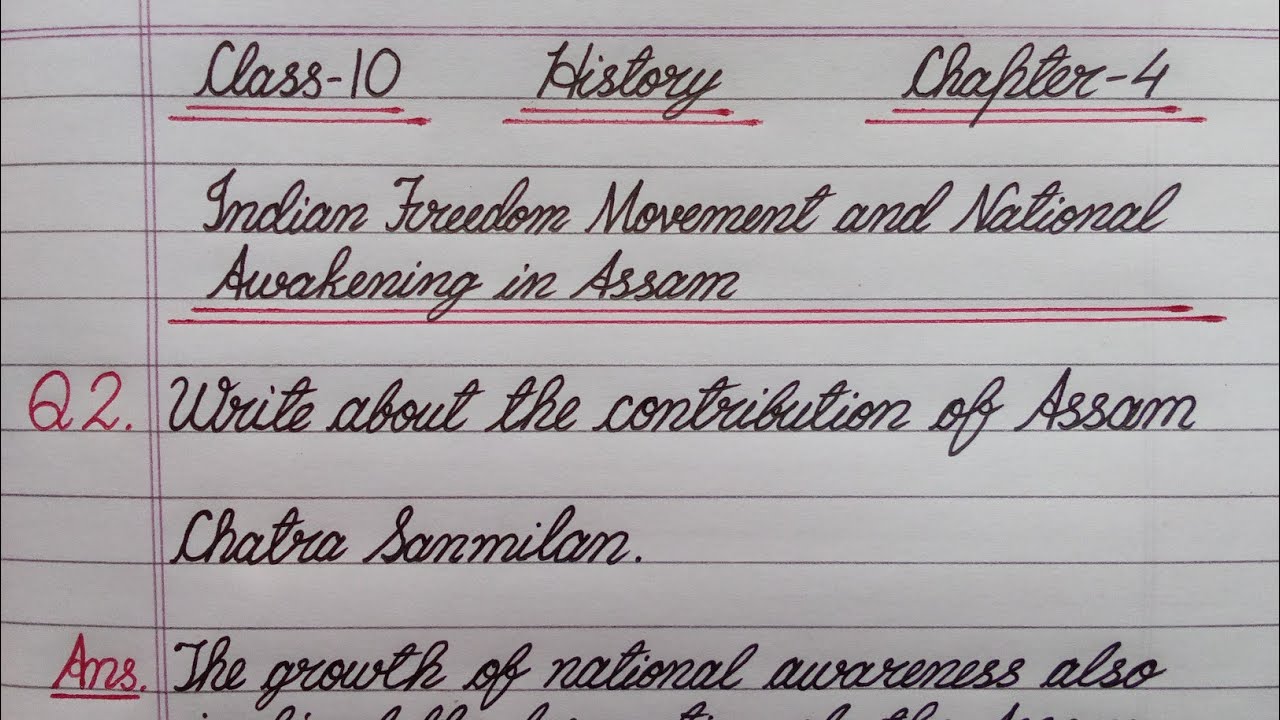 Class-10 History Chapter-4
Indian Freedom Movement and National
Awakening in Assam
Q2. Write about the contribution of Assam
Chatra Sanmilan.
Ans. The growth of national awareness also